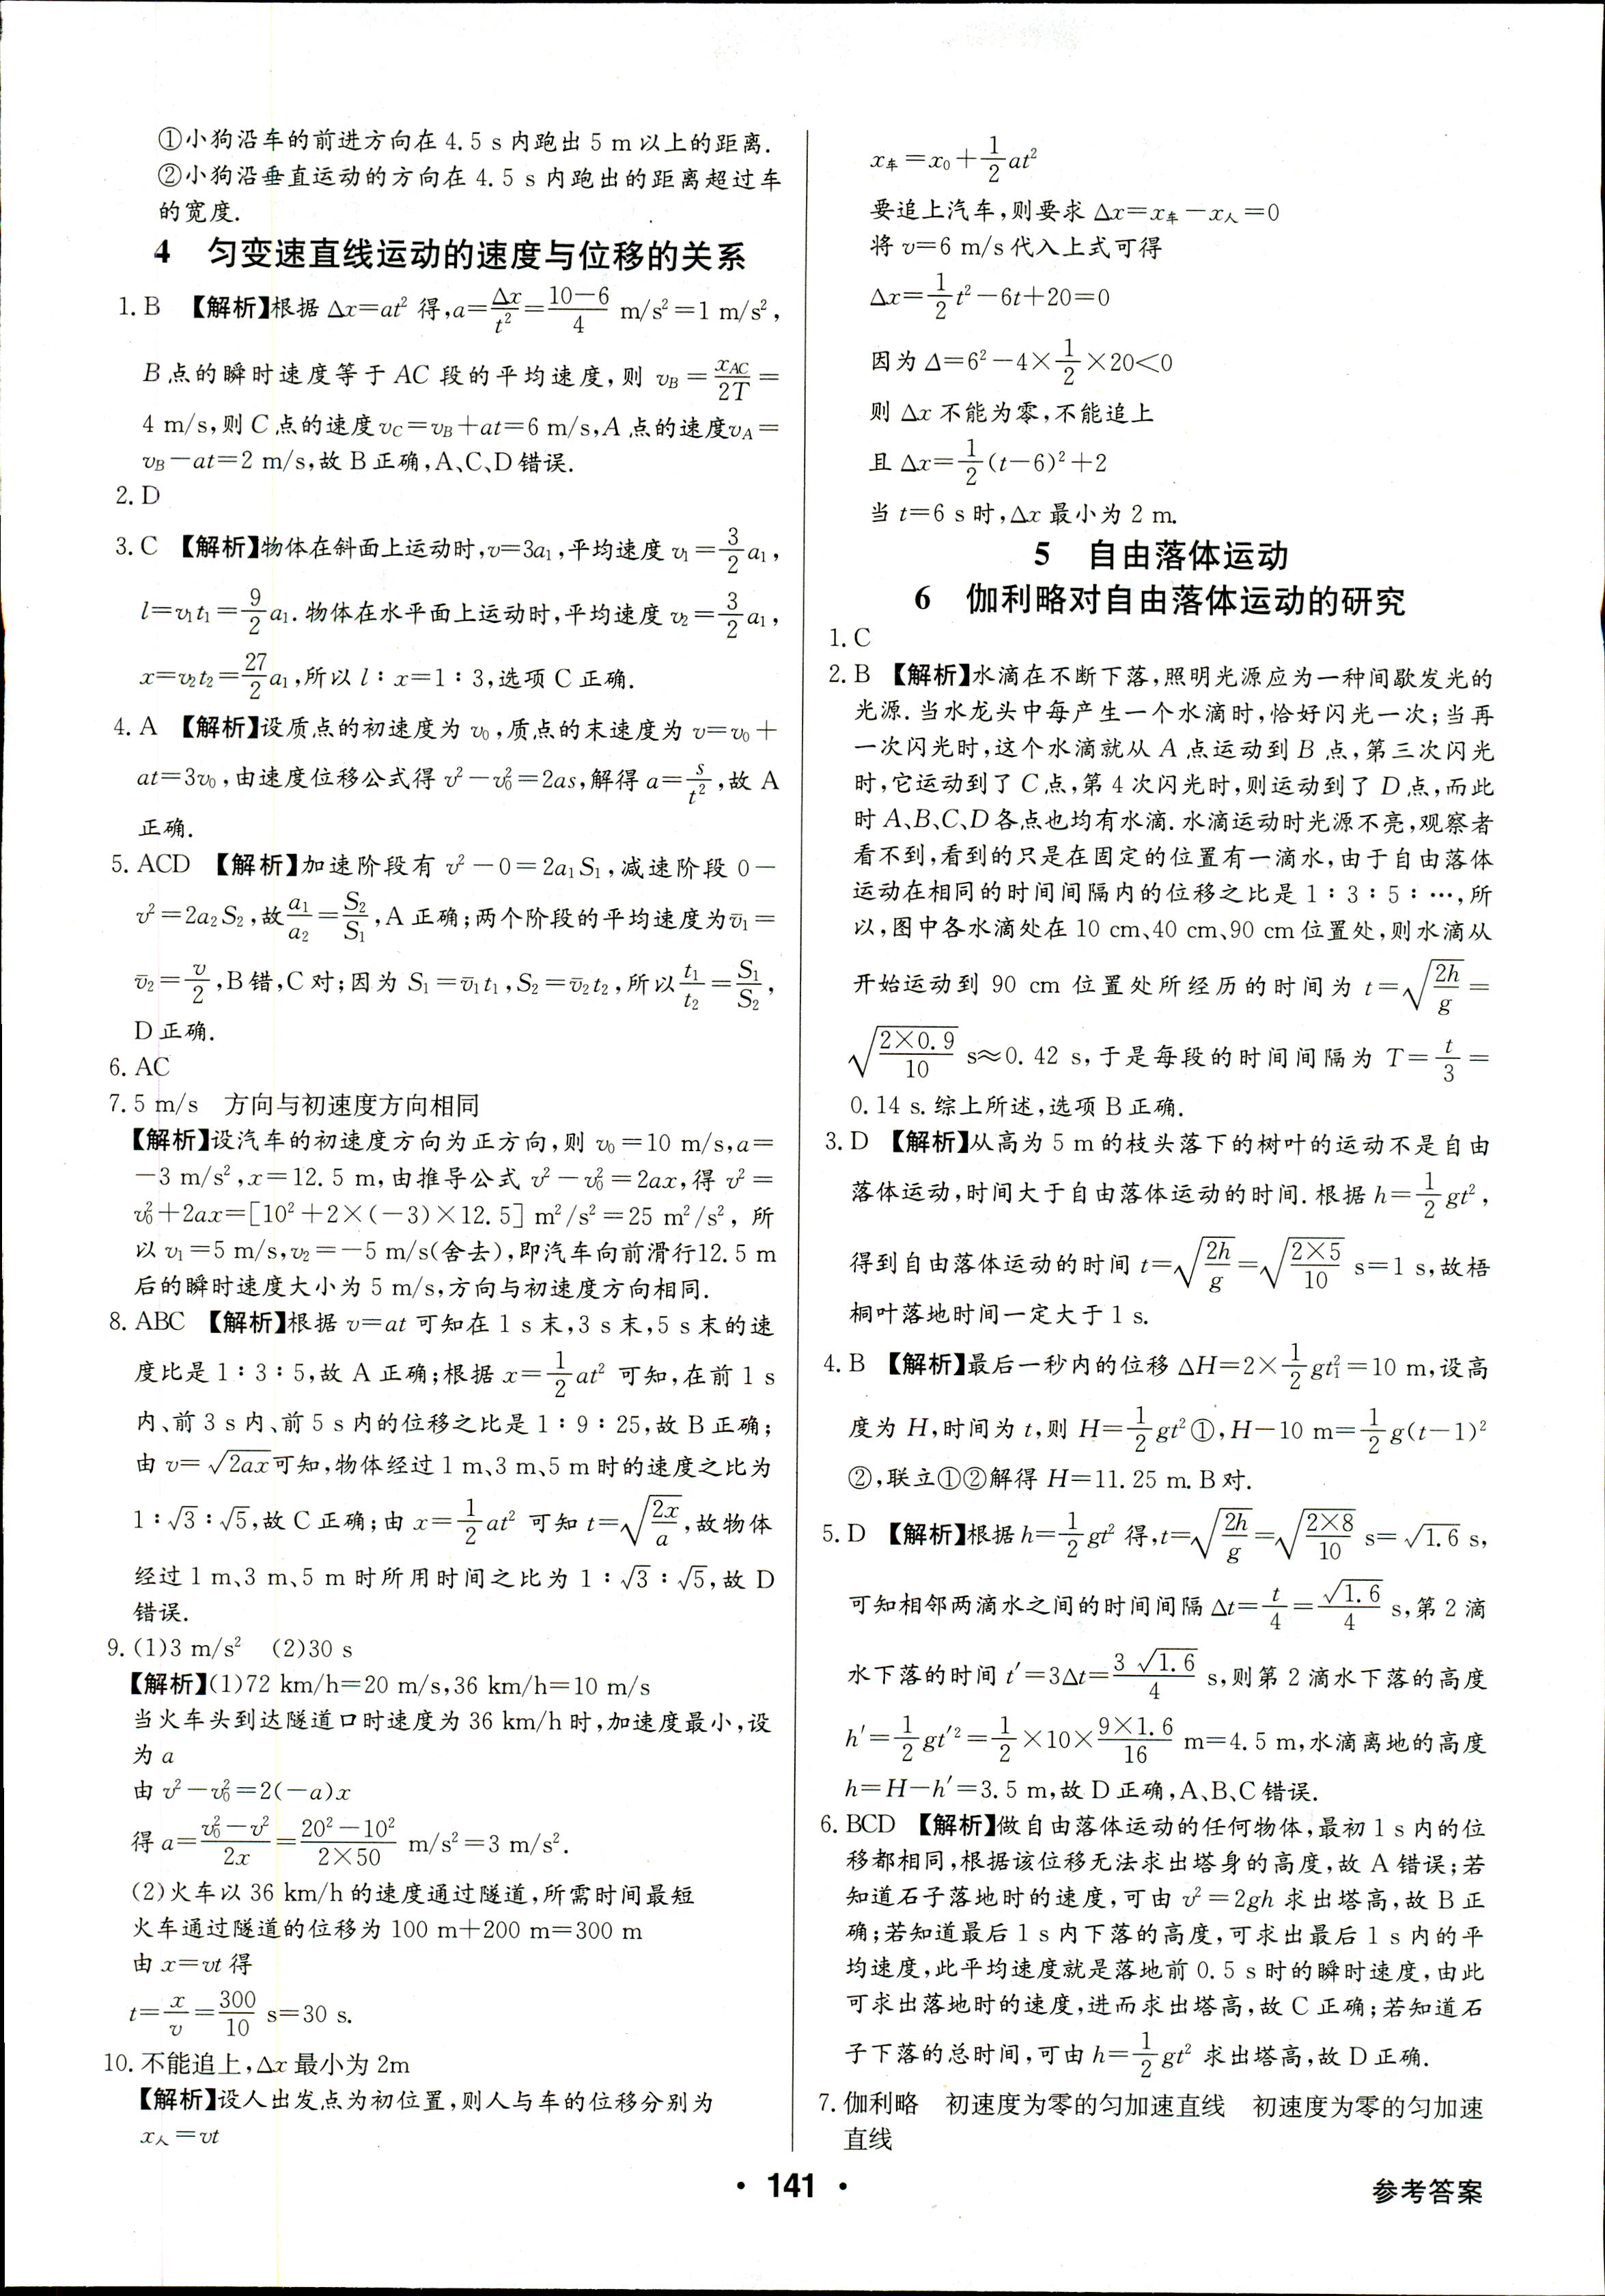 ①小狗沿车的前进方向在 4.5 s 内跑出 5 m 以上的距离.
②小狗沿垂直运动的方向在 4.5 s 内跑出的距离超过车
的宽度.
4 匀变速直线运动的速度与位移的关系
1. B 【解析】根据 Δx=at² 得,a=Δx/t²=(10−6)/4 m/s²=1 m/s²,
B 点的瞬时速度等于 AC 段的平均速度,则 v_B=x_AC/2T=
4 m/s,则 C 点的速度v_C=v_B+at=6 m/s,A 点的速度v_A=
v_B−at=2 m/s,故 B 正确,A、C、D 错误.
2. D
3. C 【解析】物体在斜面上运动时,v=3a₁,平均速度 v₁=3/2 a₁,
l=v₁t₁=9/2 a₁. 物体在水平面上运动时,平均速度 v₂=3/2 a₁,
x=v₂t₂=27/2 a₁,所以 l∶x=1∶3,选项 C 正确.
4. A 【解析】设质点的初速度为 v₀,质点的末速度为 v=v₀+
at=3v₀,由速度位移公式得 v²−v₀²=2as,解得 a=s/t²,故 A
正确.
5. ACD 【解析】加速阶段有 v²−0=2a₁S₁,减速阶段 0−
v²=2a₂S₂,故a₁/a₂=S₂/S₁,A 正确;两个阶段的平均速度为v̄₁=
v̄₂=v/2,B 错,C 对;因为 S₁=v̄₁t₁,S₂=v̄₂t₂,所以t₁/t₂=S₁/S₂,
D 正确.
6. AC
7. 5 m/s 方向与初速度方向相同
【解析】设汽车的初速度方向为正方向,则 v₀=10 m/s,a=
−3 m/s²,x=12.5 m,由推导公式 v²−v₀²=2ax,得 v²=
v₀²+2ax=[10²+2×(−3)×12.5] m²/s²=25 m²/s², 所
以 v₁=5 m/s,v₂=−5 m/s(舍去),即汽车向前滑行12.5 m
后的瞬时速度大小为 5 m/s,方向与初速度方向相同.
8. ABC 【解析】根据 v=at 可知在 1 s 末,3 s 末,5 s 末的速
度比是 1∶3∶5,故 A 正确;根据 x=1/2 at² 可知,在前 1 s
内、前 3 s 内、前 5 s 内的位移之比是 1∶9∶25,故 B 正确;
由 v=√(2ax)可知,物体经过 1 m、3 m、5 m 时的速度之比为
1∶√3∶√5,故 C 正确;由 x=1/2 at² 可知 t=√(2x/a),故物体
经过 1 m、3 m、5 m 时所用时间之比为 1∶√3∶√5,故 D
错误.
9. (1)3 m/s² (2)30 s
【解析】(1)72 km/h=20 m/s,36 km/h=10 m/s
当火车头到达隧道口时速度为 36 km/h 时,加速度最小,设
为 a
由 v²−v₀²=2(−a)x
得 a=(v₀²−v²)/2x=(20²−10²)/(2×50) m/s²=3 m/s².
(2)火车以 36 km/h 的速度通过隧道,所需时间最短
火车通过隧道的位移为 100 m+200 m=300 m
由 x=vt 得
t=x/v=300/10 s=30 s.
10. 不能追上,Δx 最小为 2m
【解析】设人出发点为初位置,则人与车的位移分别为
x人=vt
x车=x₀+1/2 at²
要追上汽车,则要求 Δx=x车−x人=0
将 v=6 m/s 代入上式可得
Δx=1/2 t²−6t+20=0
因为 Δ=6²−4×1/2×20<0
则 Δx 不能为零,不能追上
且 Δx=1/2(t−6)²+2
当 t=6 s 时,Δx 最小为 2 m.
5 自由落体运动
6 伽利略对自由落体运动的研究
1. C
2. B 【解析】水滴在不断下落,照明光源应为一种间歇发光的
光源. 当水龙头中每产生一个水滴时,恰好闪光一次;当再
一次闪光时,这个水滴就从 A 点运动到 B 点,第三次闪光
时,它运动到了 C 点,第 4 次闪光时,则运动到了 D 点,而此
时 A、B、C、D 各点也均有水滴. 水滴运动时光源不亮,观察者
看不到,看到的只是在固定的位置有一滴水,由于自由落体
运动在相同的时间间隔内的位移之比是 1∶3∶5∶…,所
以,图中各水滴处在 10 cm、40 cm、90 cm 位置处,则水滴从
开始运动到 90 cm 位置处所经历的时间为 t=√(2h/g)=
√(2×0.9/10) s≈0.42 s,于是每段的时间间隔为 T=t/3=
0.14 s. 综上所述,选项 B 正确.
3. D 【解析】从高为 5 m 的枝头落下的树叶的运动不是自由
落体运动,时间大于自由落体运动的时间. 根据 h=1/2 gt²,
得到自由落体运动的时间 t=√(2h/g)=√(2×5/10) s=1 s,故梧
桐叶落地时间一定大于 1 s.
4. B 【解析】最后一秒内的位移 ΔH=2×1/2 gt₁²=10 m,设高
度为 H,时间为 t,则 H=1/2 gt²①,H−10 m=1/2 g(t−1)²
②,联立①②解得 H=11.25 m. B 对.
5. D 【解析】根据 h=1/2 gt² 得,t=√(2h/g)=√(2×8/10) s=√1.6 s,
可知相邻两滴水之间的时间间隔 Δt=t/4=√1.6/4 s,第 2 滴
水下落的时间 t′=3Δt=3√1.6/4 s,则第 2 滴水下落的高度
h′=1/2 gt′²=1/2×10×(9×1.6)/16 m=4.5 m,水滴离地的高度
h=H−h′=3.5 m,故 D 正确,A、B、C 错误.
6. BCD 【解析】做自由落体运动的任何物体,最初 1 s 内的位
移都相同,根据该位移无法求出塔身的高度,故 A 错误;若
知道石子落地时的速度,可由 v²=2gh 求出塔高,故 B 正
确;若知道最后 1 s 内下落的高度,可求出最后 1 s 内的平
均速度,此平均速度就是落地前 0.5 s 时的瞬时速度,由此
可求出落地时的速度,进而求出塔高,故 C 正确;若知道石
子下落的总时间,可由 h=1/2 gt² 求出塔高,故 D 正确.
7. 伽利略 初速度为零的匀加速直线 初速度为零的匀加速
直线
· 141 ·
参考答案